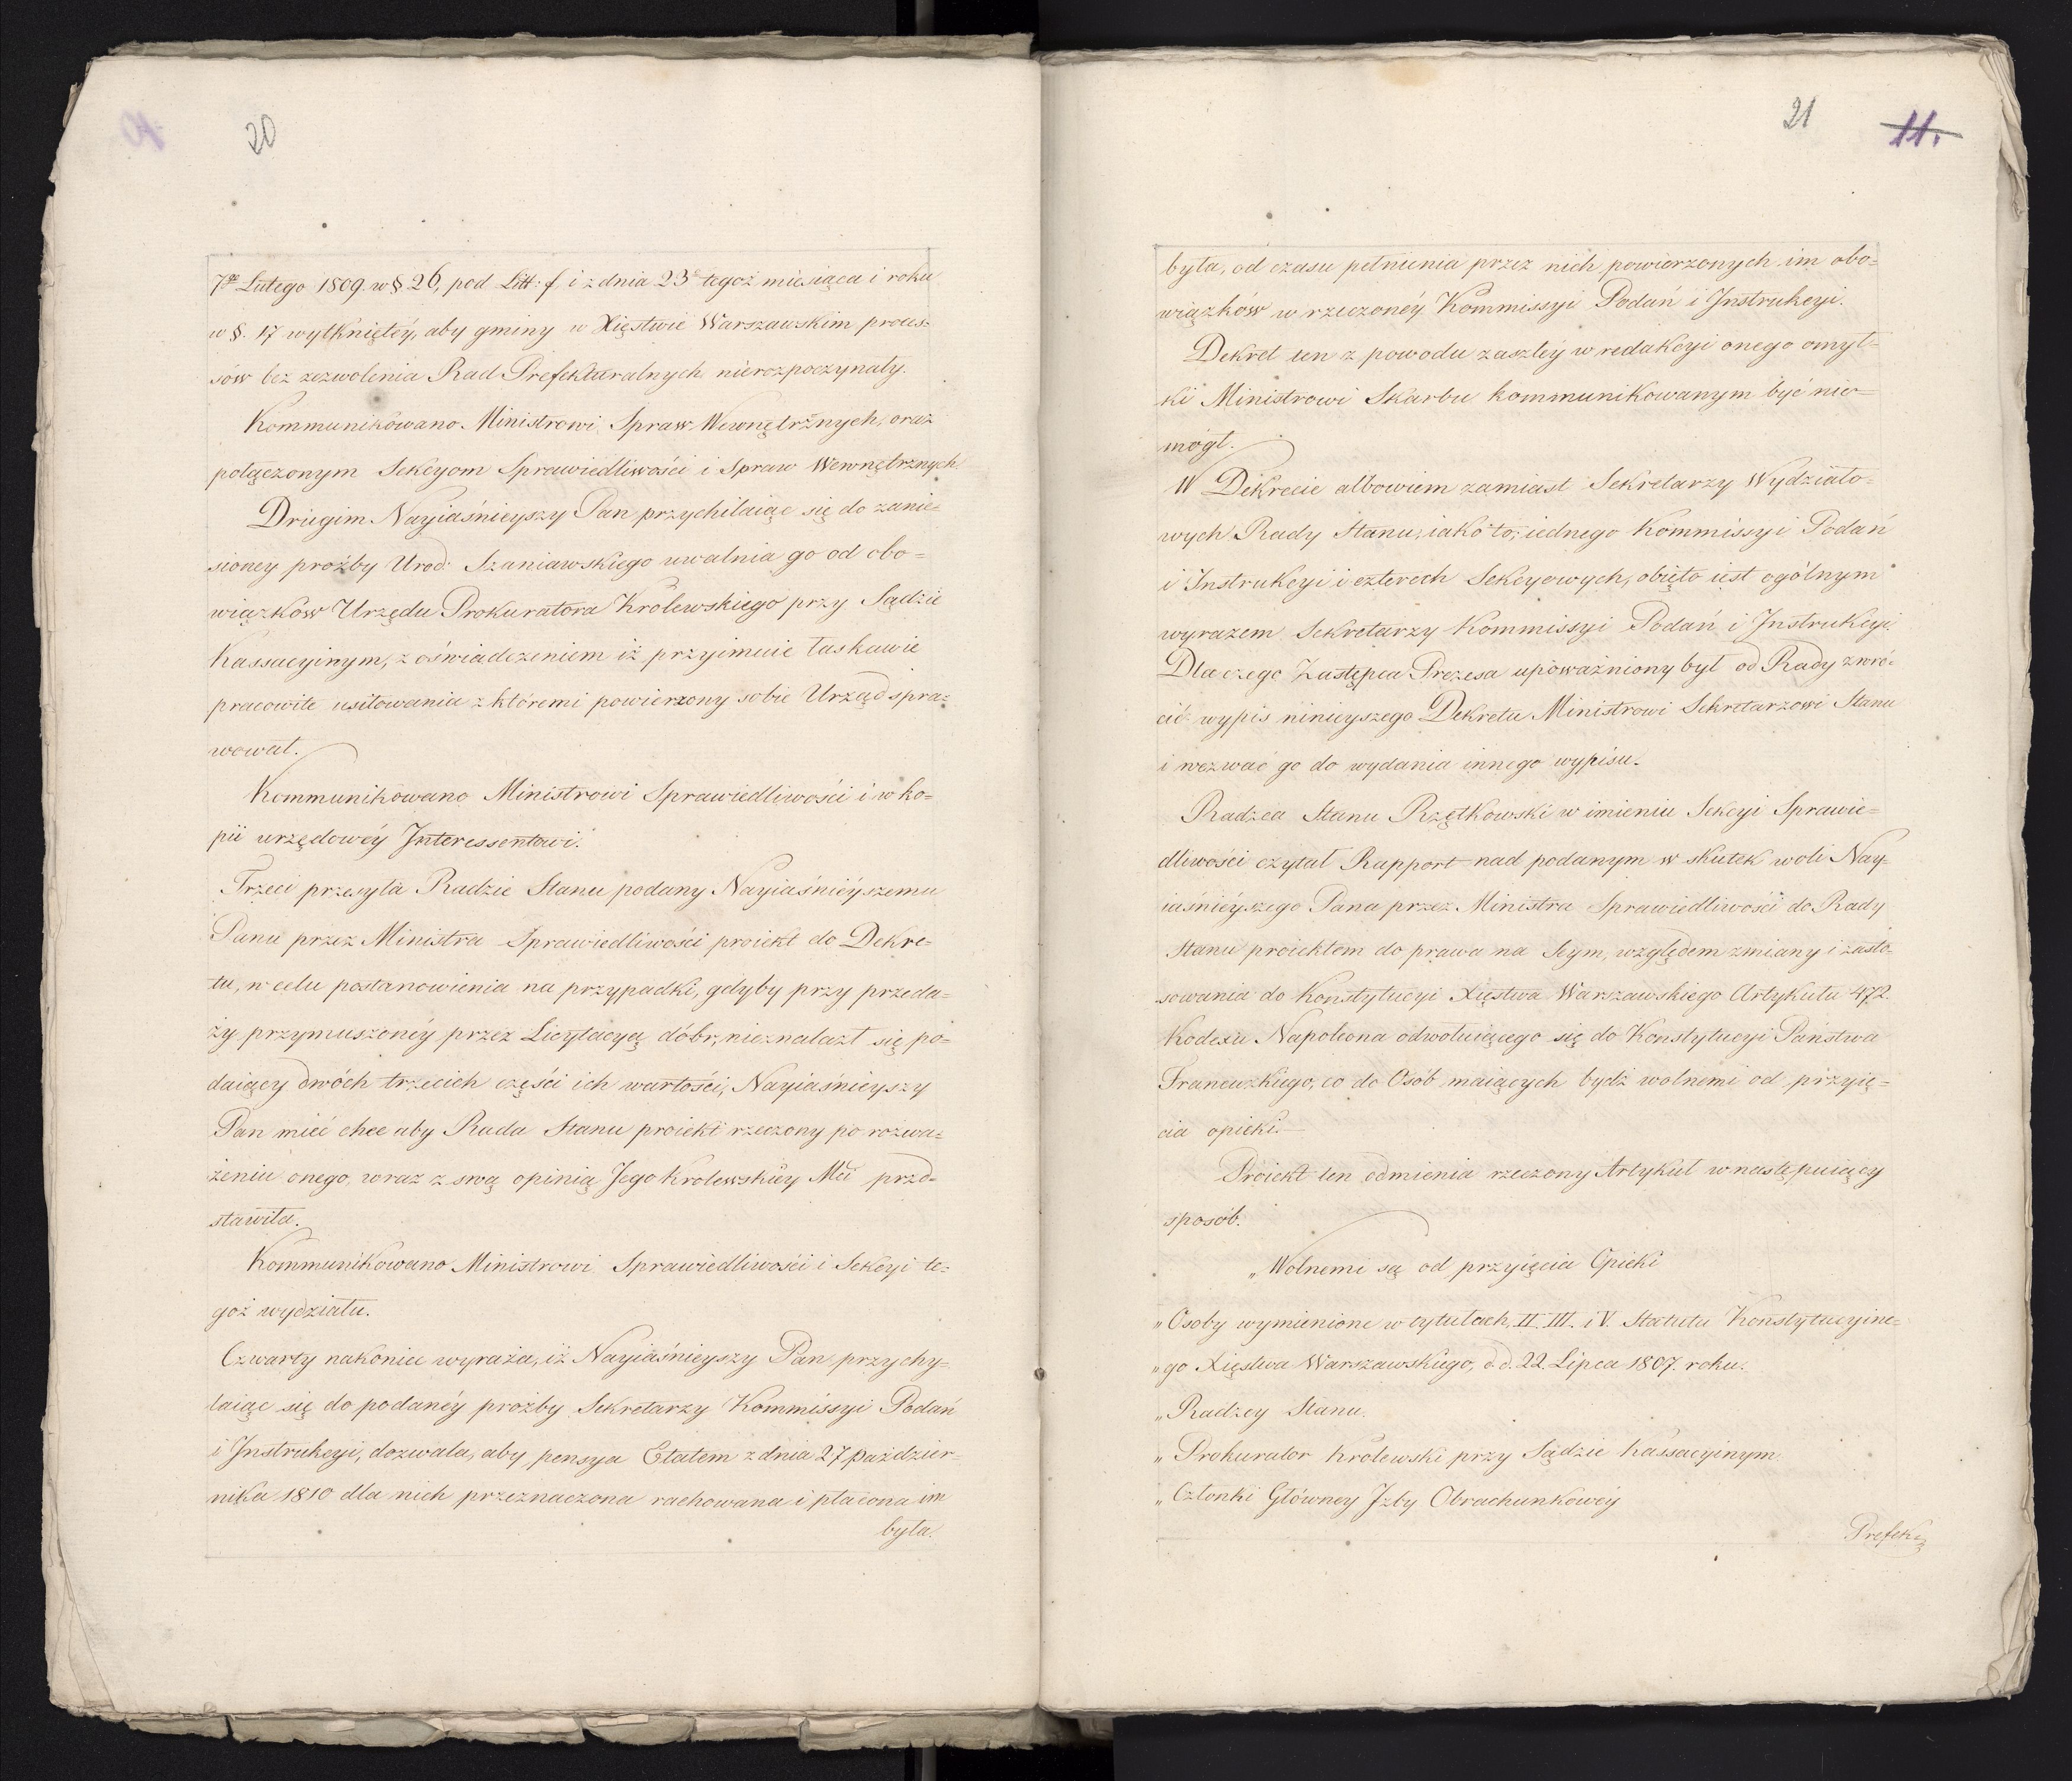 20
7go Lutego 1809. w §. 26, pod Litt: f, i z dnia 23o tegoż miesiąca i roku
w §. 17 wytkniętéy, aby gminy w Xięstwie Warszawskim proces=
sów bez zezwolenia Rad Prefekturalnych nierozpoczynały.
Kommunikowano Ministrowi Spraw Wewnętrznych, oraz
połączonym Sekcyom Sprawiedliwości i Spraw Wewnętrznych.
Drugim Nayiaśnieyszy Pan przychilaiąc się do zanie=
sioney proźby Urod: Szaniawskiego uwalnia go od obo=
wiązków Urzędu Prokuratora Królewskiego przy Sądzie
Kassacyinym, z oświadczeniem iż przyimuie łaskawie
pracowite usiłowania z któremi powierzony sobie Urząd spra=
wował.
Kommunikowano Ministrowi Sprawiedliwości i w ko=
pii urzędowéy Interessentowi.
Trzeci przesyła Radzie Stanu podany Nayiaśniéyszemu
Panu przez Ministra Sprawiedliwości proiekt do Dekre=
tu, w celu postanowienia na przypadki, gdyby przy przeda=
ży przymuszonéy przez Licytacyą dóbr, nieznalazł się po=
daiący dwóch trzecich części ich wartości, Nayiaśnieyszy
Pan mieć chce aby Rada Stanu proiekt rzeczony po rozwa=
żeniu onego, wraz z swą opinią Jego Krolewskiey Mci przed=
stawiła.
Kommunikowano Ministrowi Sprawiedliwości i Sekcyi te=
goż wydziału.
Czwarty nakoniec wyraża, iż Nayiaśnieyszy Pan przychy=
laiąc się do podanéy prożby Sekretarzy Kommissyi Podań
i Instrukcyi, dozwala, aby pensya Etatem z dnia 27 Paździer=
nika 1810 dla nich przeznaczona rachowana i płacona im
była.
21
11.
była, od czasu pełnienia przez nich powierzonych im obo=
wiązków w rzeczonéy Kommissyi Podań i Instrukcyi.
Dekret ten z powodu zaszłéy w redakcyi onego omył=
ki Ministrowi Skarbu kommunikowanym być nie=
mógł.
W Dekrecie albowiem zamiast Sekretarzy Wydziało=
wych Rady Stanu, iako to, iednego Kommissyi Podań
i Instrukcyi i czterech Sekcyowych, obięto iest ogólnym
wyrazem Sekretarzy Kommissyi Podań i Instrukcyi.
Dla czego Zastępca Prezesa upoważniony był od Rady zwró=
cić wypis ninieyszego Dekretu Ministrowi Sekretarzowi Stanu
i wezwać go do wydania innego wypisu.
Radzca Stanu Rzętkowski w imieniu Sekcyi Sprawie=
dliwości czytał Rapport nad podanym w skutek woli Nay=
iaśniéyszego Pana przez Ministra Sprawiedliwości do Rady
Stanu proiektem do prawa na Seym, względem zmiany i zasto=
sowania do Konstytucyi Xięstwa Warszawskiego Artykułu 472.
Kodexu Napoleona odwołuiącego się do Konstytucyi Państwa
Francuzkiego, co do Osób maiących bydź wolnemi od przyię=
cia opieki.
Proiekt ten odmienia rzeczony Artykuł w następuiący
sposób.
„Wolnemi są od przyięcia Opieki
„Osoby wymienione w tytułach, II. III. i V. Statutu Konstytucyine=
„go Xięstwa Warszawskiego, d. d. 22. Lipca 1807. roku.
„Radzcy Stanu.
„Prokurator Królewski przy Sądzie Kassacyinym
„Członki Główney Izby Obrachunkowéy
Prefek=